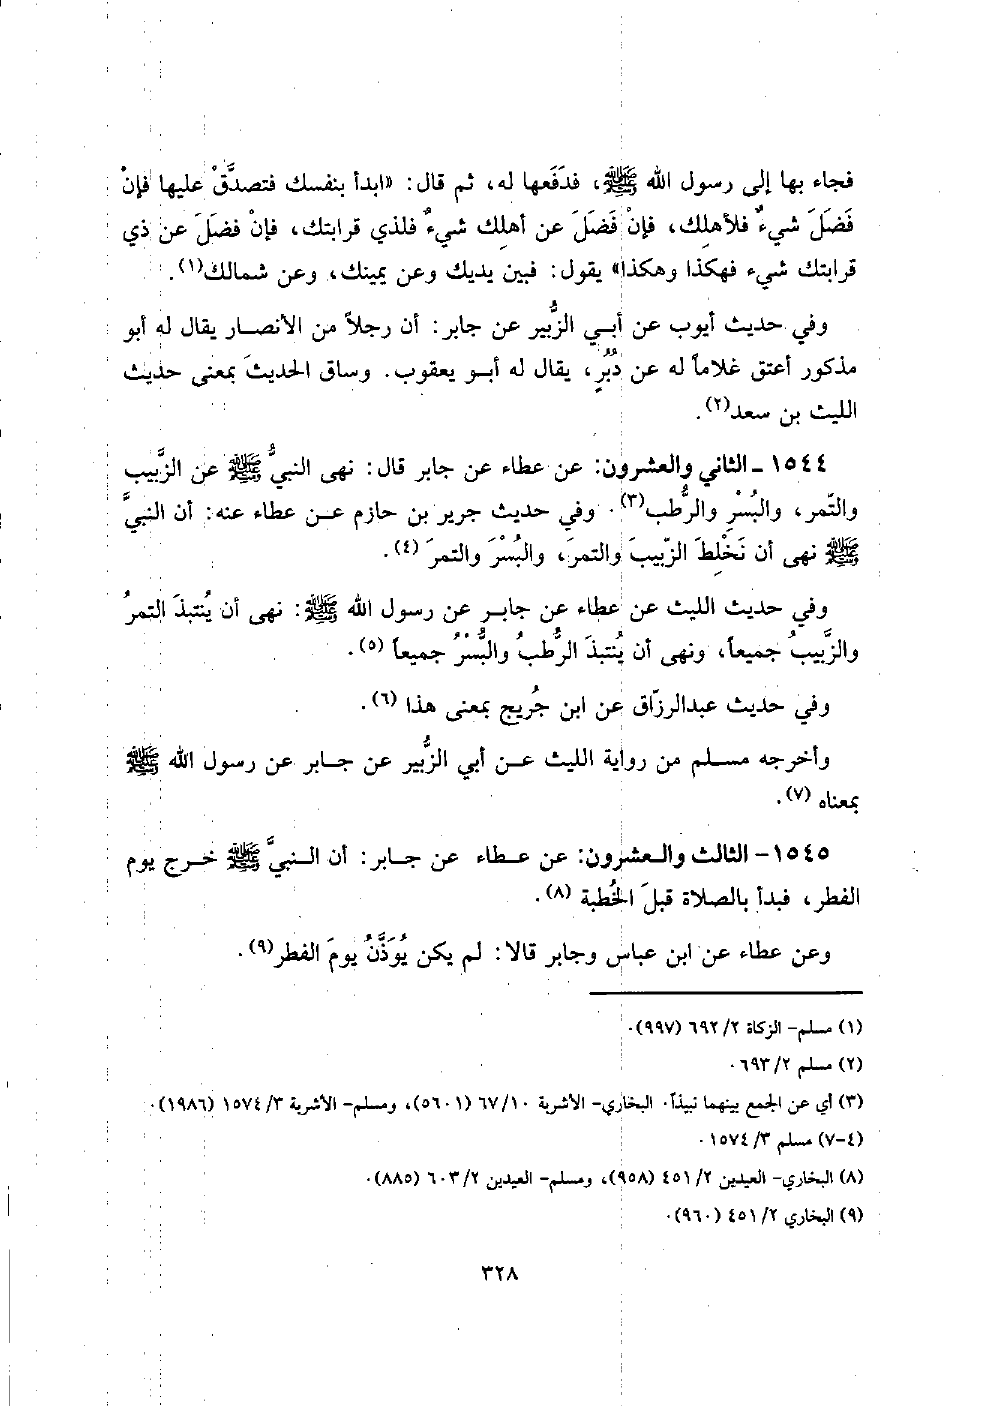 فجاء بها إلى رسول الله ﷺ، فدَفَعها له، ثم قال: «ابدأ بنفسك فتصدَّقْ عليها فإنْ
فَضَلَ شيءٌ فلأهلِك، فإنْ فَضَلَ عن أهلِك شيءٌ فلذي قرابتك، فإنْ فضَلَ عن ذي
قرابتك شيء فهكذا وهكذا» يقول: فبين يديك وعن يمينك، وعن شمالك(١).
وفي حديث أيوب عن أبي الزُّبير عن جابر: أن رجلاً من الأنصار يقال له أبو
مذكور أعتق غلاماً له عن دُبُرٍ، يقال له أبو يعقوب. وساق الحديثَ بمعنى حديث
الليث بن سعد(٢).
١٥٤٤ - الثاني والعشرون: عن عطاء عن جابر قال: نهى النبيُّ ﷺ عن الزَّبيب
والتّمر، والبُسْرِ والرُّطب(٣). وفي حديث جرير بن حازم عن عطاء عنه: أن النبيَّ
ﷺ نهى أن نَخْلِطَ الزّبيبَ والتمرَ، والبُسْرَ والتمرَ (٤).
وفي حديث الليث عن عطاء عن جابر عن رسول الله ﷺ: نهى أن يُنتبذَ التمرُ
والزَّبيبُ جميعاً، ونهى أن يُنتبذَ الرُّطبُ والبُّسْرُ جميعاً (٥).
وفي حديث عبدالرزّاق عن ابن جُريج بمعنى هذا (٦).
وأخرجه مسلم من رواية الليث عن أبي الزُّبير عن جابر عن رسول الله ﷺ
بمعناه (٧).
١٥٤٥- الثالث والعشرون: عن عطاء عن جابر: أن النبيَّ ﷺ خرج يوم
الفطر، فبدأ بالصلاة قبلَ الخُطبة (٨).
وعن عطاء عن ابن عباس وجابر قالا: لم يكن يُوَذَّنُ يومَ الفطر(٩).
(١) مسلم- الزكاة ٢/ ٦٩٢ (٩٩٧).
(٢) مسلم ٢/ ٦٩٣.
(٣) أي عن الجمع بينهما نبيذاً. البخاري- الأشربة ١٠/ ٦٧ (٥٦٠١)، ومسلم- الأشربة ٣/ ١٥٧٤ (١٩٨٦).
(٤-٧) مسلم ٣/ ١٥٧٤.
(٨) البخاري- العيدين ٢/ ٤٥١ (٩٥٨)، ومسلم- العيدين ٢/ ٦٠٣ (٨٨٥).
(٩) البخاري ٢/ ٤٥١ (٩٦٠).
٣٢٨